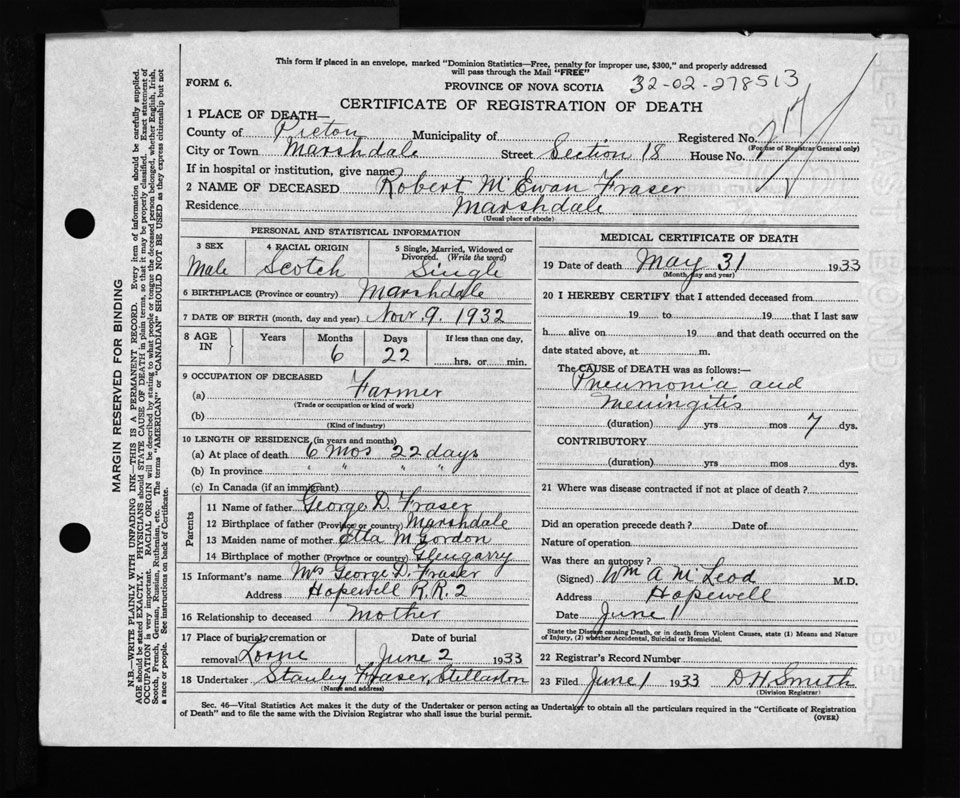 This form if placed in an envelope, marked "Dominion Statistics—Free, penalty for improper use, $300," and properly addressed
will pass through the Mail "FREE"
FORM 6.
PROVINCE OF NOVA SCOTIA 32-02-278513
CERTIFICATE OF REGISTRATION OF DEATH
1 PLACE OF DEATH—
County of Pictou Municipality of Registered No.
(For use of Registrar General only)
City or Town Marshdale Street Section 18 House No.
If in hospital or institution, give name
2 NAME OF DECEASED Robert McEwan Fraser
Residence Marshdale
(Usual place of abode)
PERSONAL AND STATISTICAL INFORMATION
3 SEX 4 RACIAL ORIGIN 5 Single, Married, Widowed or
Divorced. (Write the word)
Male Scotch Single
6 BIRTHPLACE (Province or country) Marshdale
7 DATE OF BIRTH (month, day and year) Nov. 9. 1932
8 AGE IN Years Months Days If less than one day,
6 22 hrs. or min.
9 OCCUPATION OF DECEASED
(a) Farmer
(Trade or occupation or kind of work)
(b)
(Kind of industry)
10 LENGTH OF RESIDENCE (in years and months)
(a) At place of death 6 mos 22 days
(b) In province " " " "
(c) In Canada (if an immigrant)
Parents
11 Name of father George D. Fraser
12 Birthplace of father (Province or country) Marshdale
13 Maiden name of mother Etta M Gordon
14 Birthplace of mother (Province or country) Glengarry
15 Informant's name Mrs George D. Fraser
Address Hopewell R.R. 2
16 Relationship to deceased Mother
17 Place of burial, cremation or Date of burial
removal Lorne June 2 1933
18 Undertaker Stanley Fraser, Stellarton
(Name and address)
MEDICAL CERTIFICATE OF DEATH
19 Date of death May 31 1933
(Month, day and year)
20 I HEREBY CERTIFY that I attended deceased from
19 to 19 that I last saw
h alive on 19 and that death occurred on the
date stated above, at m.
The CAUSE of DEATH was as follows:—
Pneumonia and
meningitis
(duration) yrs mos 7 dys.
CONTRIBUTORY
(duration) yrs mos dys.
21 Where was disease contracted if not at place of death?
Did an operation precede death? Date of
Nature of operation
Was there an autopsy?
(Signed) Wm A McLeod M.D.
Address Hopewell
Date June 1
State the Disease causing Death, or in death from Violent Causes, state (1) Means and Nature
of Injury, (2) whether Accidental, Suicidal or Homicidal.
22 Registrar's Record Number
23 Filed June 1 1933 D H Smith
(Division Registrar)
Sec. 46—Vital Statistics Act makes it the duty of the Undertaker or person acting as Undertaker to obtain all the particulars required in the "Certificate of Registration
of Death" and to file the same with the Division Registrar who shall issue the burial permit. (OVER)
MARGIN RESERVED FOR BINDING
N.B.—WRITE PLAINLY WITH UNFADING INK—THIS IS A PERMANENT RECORD. Every item of information should be carefully supplied.
AGE should be stated EXACTLY. PHYSICIANS should STATE CAUSE OF DEATH in plain terms, so that it may be properly classified. Exact statement of
OCCUPATION is very important. RACIAL ORIGIN will be described by stating to what people or tongue the deceased person belonged, whether English, Irish,
Scotch, French, German, Russian, Ruthenian, etc. The terms "AMERICAN" or "CANADIAN" SHOULD NOT BE USED as they express citizenship but not
a race or people. See instructions on back of Certificate.